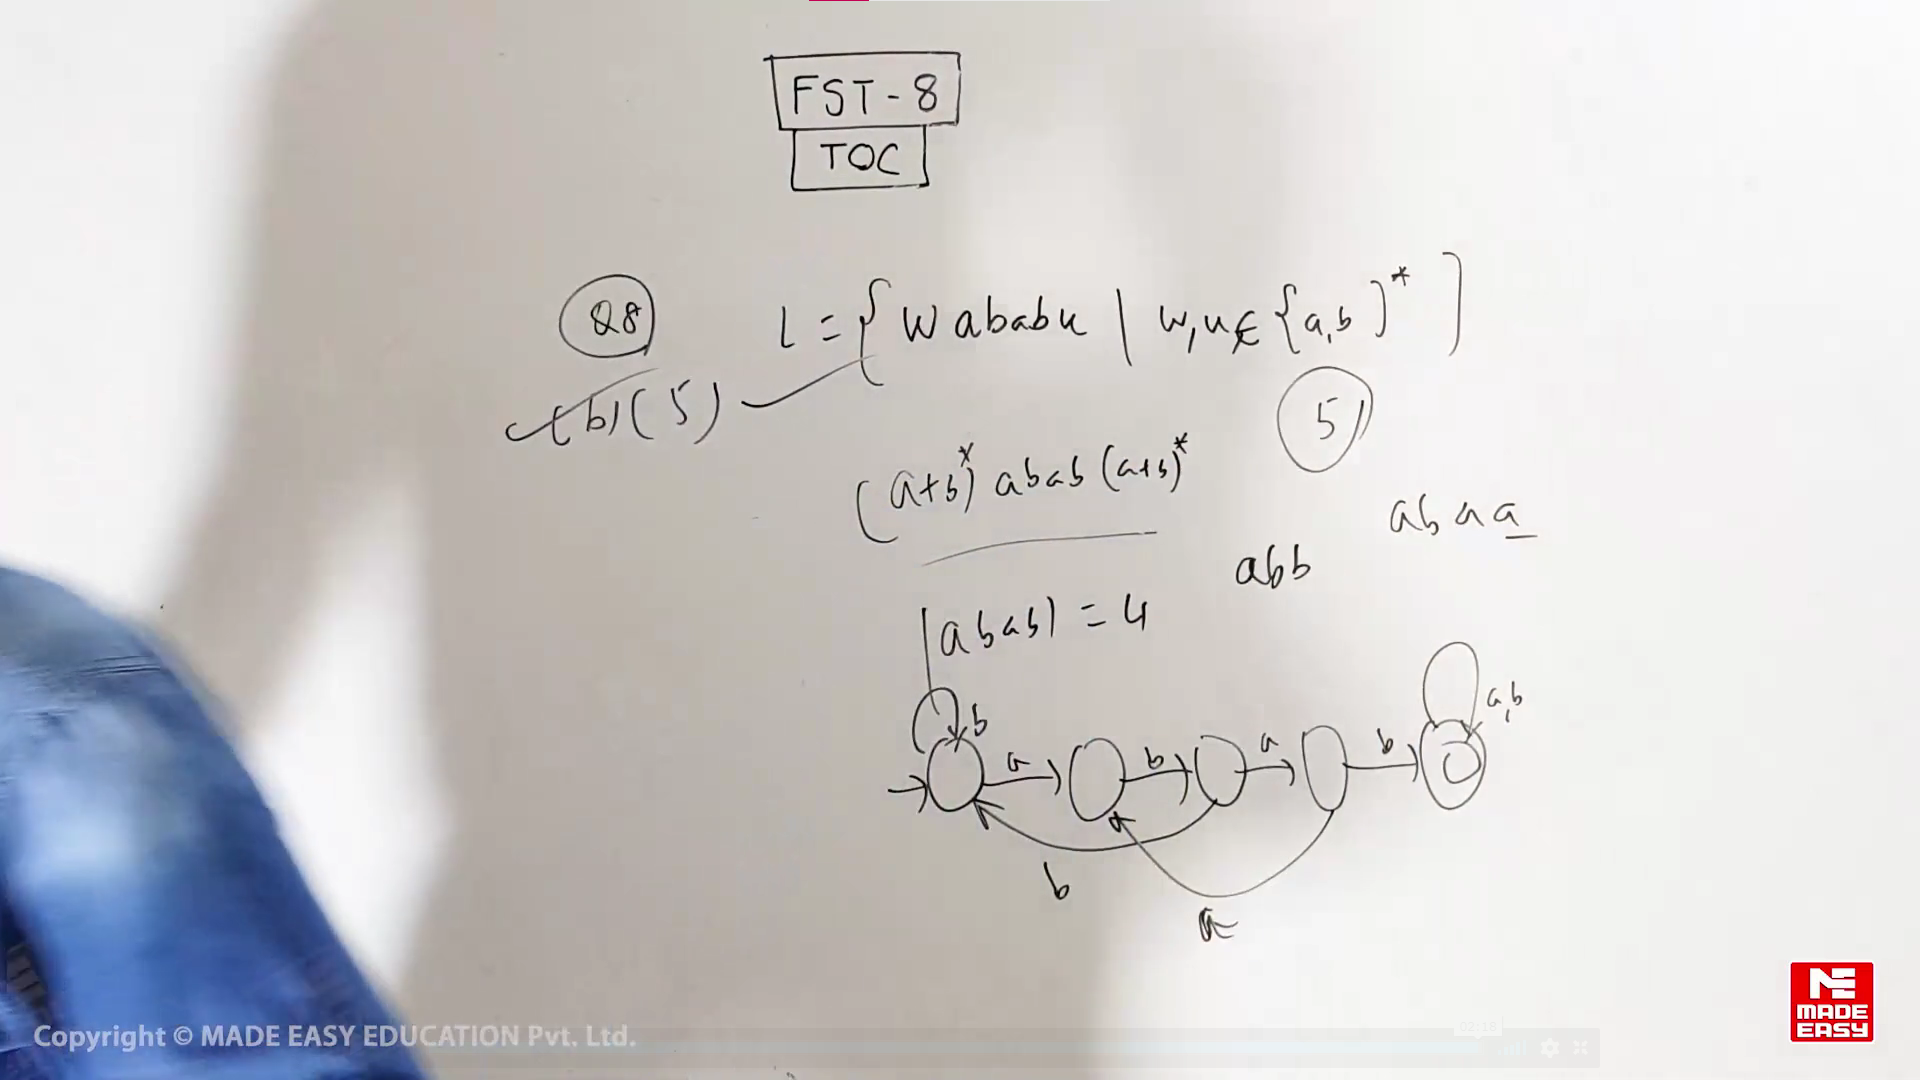 FST-8
TOC
Q8
L = { w ababu | w,u ∈ {a,b}* }
(b) (5)
5
(a+b)* abab (a+b)*
abaa
abb
|abab| = 4
b
a b a b
a,b
b
a
Copyright © MADE EASY EDUCATION Pvt. Ltd.
02:18
ME
MADE
EASY